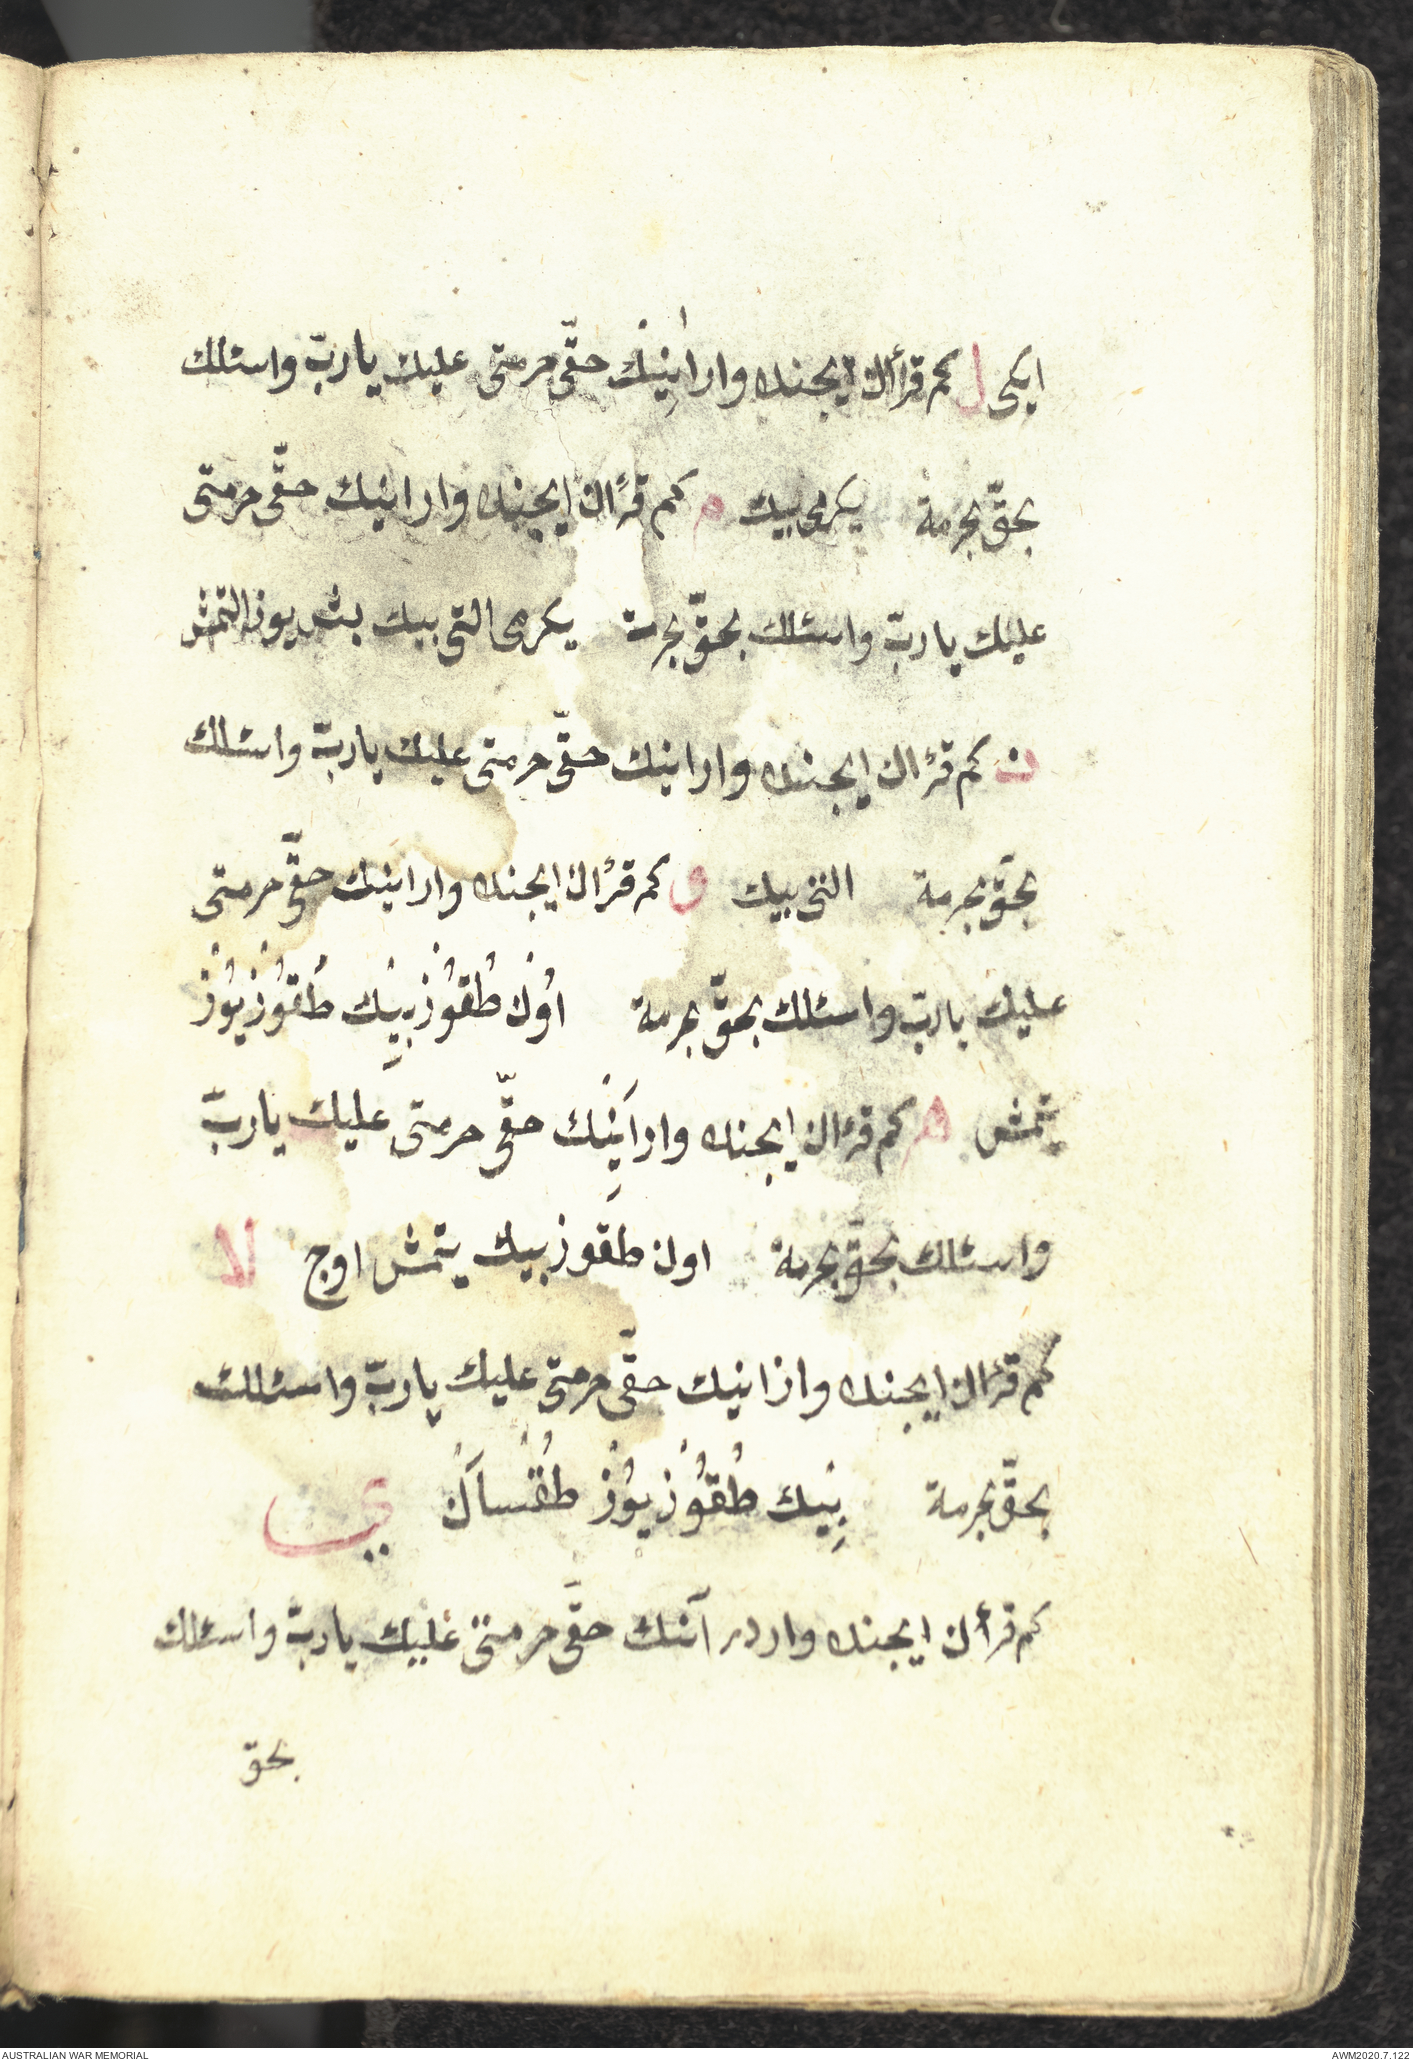 ايكى ل كم قرأن ايچنده وار اٰنِنك حقّى حرمتى عليك ياربّ واسئلك
بحقّ بحرمة يكرمى بيك م كم قرأن ايچنده وار انينك حقّى حرمتى
عليك ياربّ واسئلك بحقّ بحرمة يكرمى التى بيك بش يوز التمش
ن كم قرأن ايچنده وار انينك حقّى حرمتى عليك ياربّ واسئلك
بحقّ بحرمة التى بيك و كم قرأن ايچنده وار انينك حقّى حرمتى
عليك ياربّ واسئلك بحقّ بحرمة اوُنْ طُقوُزْ بِيك طُقوُزْ يوُزْ
يتمش ه كم قرأن ايچنده وار اَنِنْك حقّى حرمتى عليك ياربّ
واسئلك بحقّ بحرمة اون طقوز بيك يتمش اوج لا
كم قرأن ايچنده وار انينك حقّى حرمتى عليك ياربّ واسئلك
بحقّ بحرمة بِيْك طُقوُز يوُزْ طُقْسَانْ ي
كم قرأن ايچنده واردر آننك حقّى حرمتى عليك ياربّ واسئلك
بحق
AUSTRALIAN WAR MEMORIAL
AWM2020.7.122